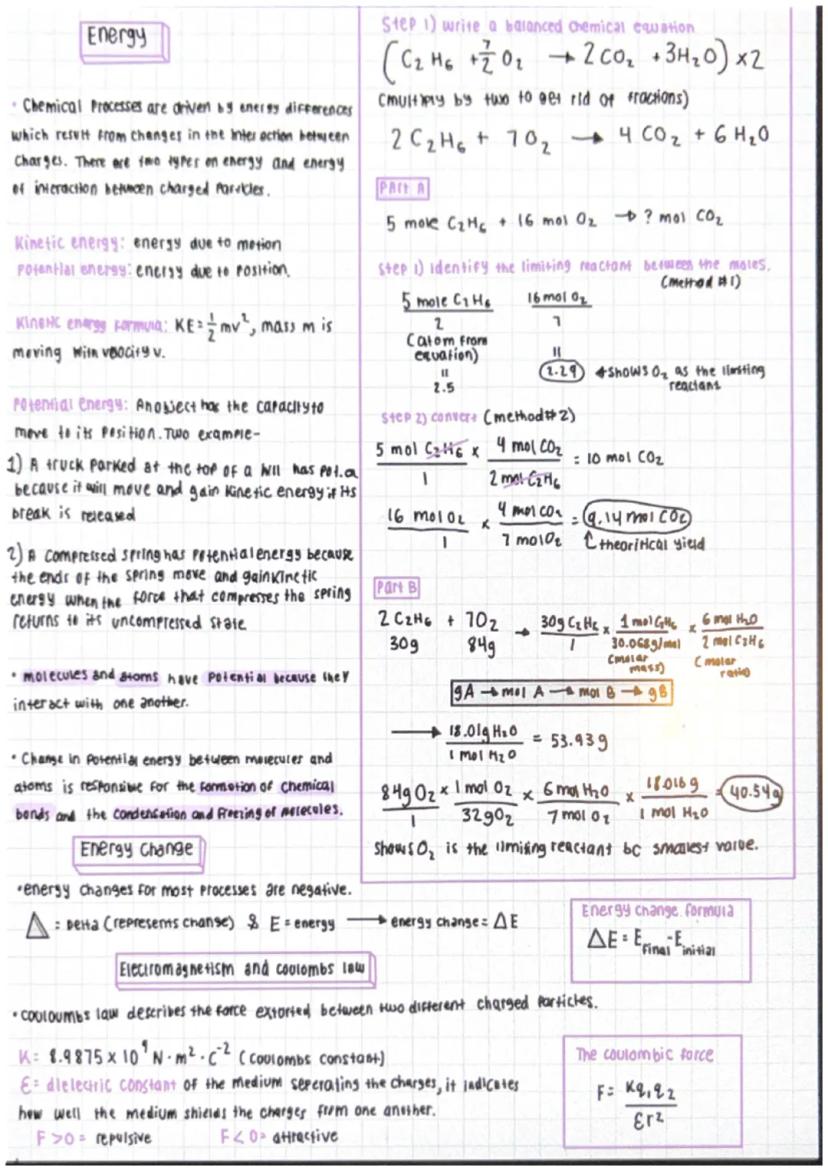 Energy
• Chemical Processes are driven by energy differences
which result from changes in the interaction between
Charges. There are two types on energy and energy
of interaction between charged Particles.
Kinetic energy: energy due to motion
Potential energy: energy due to Position.
Kinetic energy formula: KE = 1/2 mv², mass m is
moving with velocity v.
Potential Energy: An object has the capacity to
move to its Position. Two example-
1) A truck Parked at the top of a hill has Pot.a
because it will move and gain kinetic energy if its
break is released
2) A compressed spring has Potential energy because
the ends of the spring move and gain kinetic
energy when the force that compresses the spring
returns to its uncompressed state.
• molecules and atoms have Potential because they
interact with one another.
• Change in Potential energy between molecules and
atoms is responsible for the formation of chemical
bonds and the condensation and freezing of molecules.
Step 1) write a balanced chemical equation
(C₂H₆ + 7/2 O₂ → 2CO₂ + 3H₂O) x2
(multiply by two to get rid of fractions)
2 C₂H₆ + 7O₂ → 4 CO₂ + 6 H₂O
Part A
5 mole C₂H₆ + 16 mol O₂ → ? mol CO₂
Step 1) identify the limiting reactant between the moles.
(method #1)
5 mole C₂H₆ / 2 16 mol O₂ / 7
(atom from
equation)
= 2.5 = 2.29 ← shows O₂ as the limiting
reactant
Step 2) convert (method #2)
5 mol C₂H₆ / 1 x 4 mol CO₂ / 2 mol C₂H₆ = 10 mol CO₂
16 mol O₂ / 1 x 4 mol CO₂ / 7 mol O₂ = 9.14 mol CO₂
↑ theoritical yield
Part B
2 C₂H₆ + 7O₂ → 30g C₂H₆ / 1 x 1 mol C₂H₆ / 30.068g/mol x 6 mol H₂O / 2 mol C₂H₆
30g 84g (molar mass) (molar ratio)
gA → mol A → mol B → gB
→ 18.01g H₂O / 1 mol H₂O = 53.93g
84g O₂ / 1 x 1 mol O₂ / 32g O₂ x 6 mol H₂O / 7 mol O₂ x 18.016 g / 1 mol H₂O = 40.54g
shows O₂ is the limiting reactant bc smallest value.
Energy Change
• energy changes for most processes are negative.
Δ = Delta (represents change) & E = energy → energy change = ΔE
Energy change formula
ΔE = E final - E initial
Electromagnetism and coulombs law
• couloumbs law describes the force extorted between two different charged Particles.
K = 8.9875 x 10⁹ N·m²·C⁻² (coulombs constant)
ε = dielectric constant of the medium seperating the charges, it indicates
how well the medium shields the charges from one another.
F > 0 = repulsive F < 0 = attractive
The coulombic force
F = Kq₁q₂ / εr²